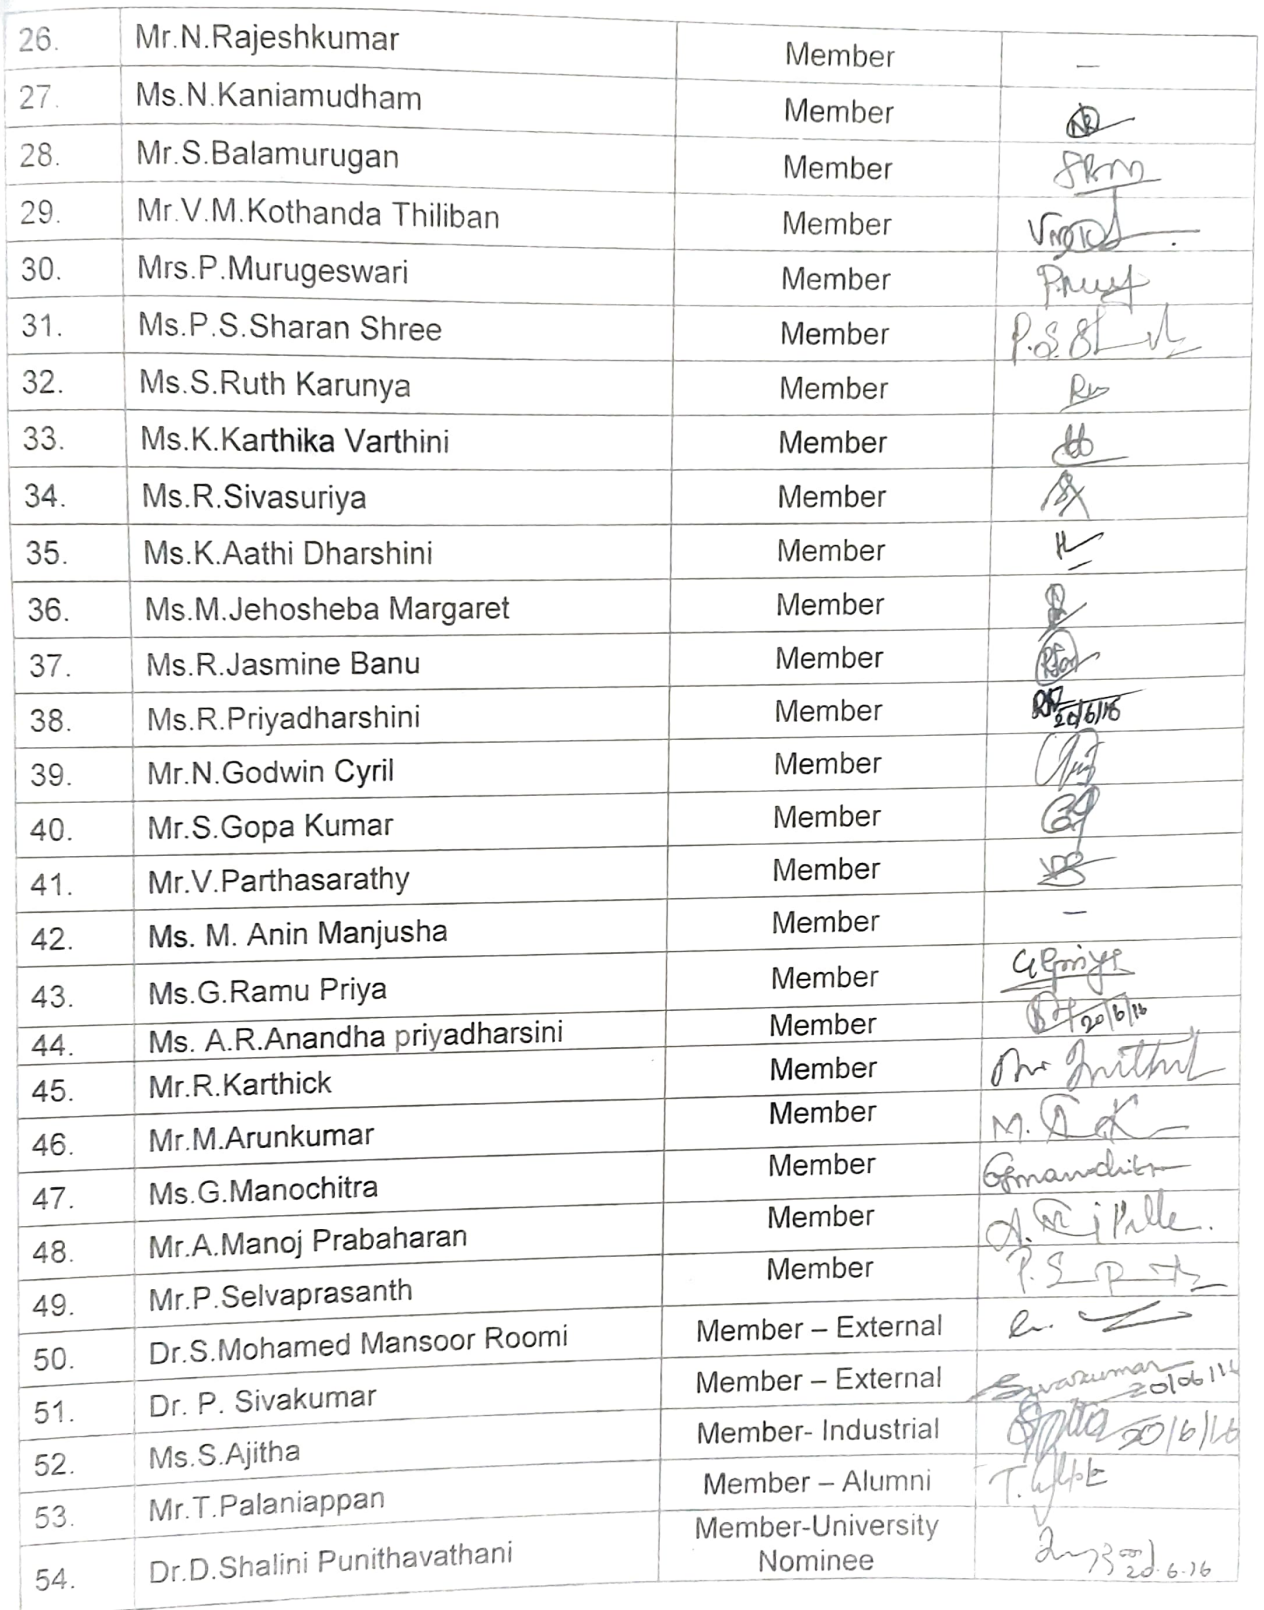 26. Mr.N.Rajeshkumar Member –
27. Ms.N.Kaniamudham Member
28. Mr.S.Balamurugan Member
29. Mr.V.M.Kothanda Thiliban Member
30. Mrs.P.Murugeswari Member
31. Ms.P.S.Sharan Shree Member
32. Ms.S.Ruth Karunya Member
33. Ms.K.Karthika Varthini Member
34. Ms.R.Sivasuriya Member
35. Ms.K.Aathi Dharshini Member
36. Ms.M.Jehosheba Margaret Member
37. Ms.R.Jasmine Banu Member
38. Ms.R.Priyadharshini Member 20/6/16
39. Mr.N.Godwin Cyril Member
40. Mr.S.Gopa Kumar Member
41. Mr.V.Parthasarathy Member
42. Ms. M. Anin Manjusha Member –
43. Ms.G.Ramu Priya Member
44. Ms. A.R.Anandha priyadharsini Member 20/6/16
45. Mr.R.Karthick Member
46. Mr.M.Arunkumar Member
47. Ms.G.Manochitra Member
48. Mr.A.Manoj Prabaharan Member
49. Mr.P.Selvaprasanth Member
50. Dr.S.Mohamed Mansoor Roomi Member – External
51. Dr. P. Sivakumar Member – External Sivakumar 20/06/16
52. Ms.S.Ajitha Member- Industrial 20/6/16
53. Mr.T.Palaniappan Member – Alumni
54. Dr.D.Shalini Punithavathani Member-University
Nominee 20.6.16